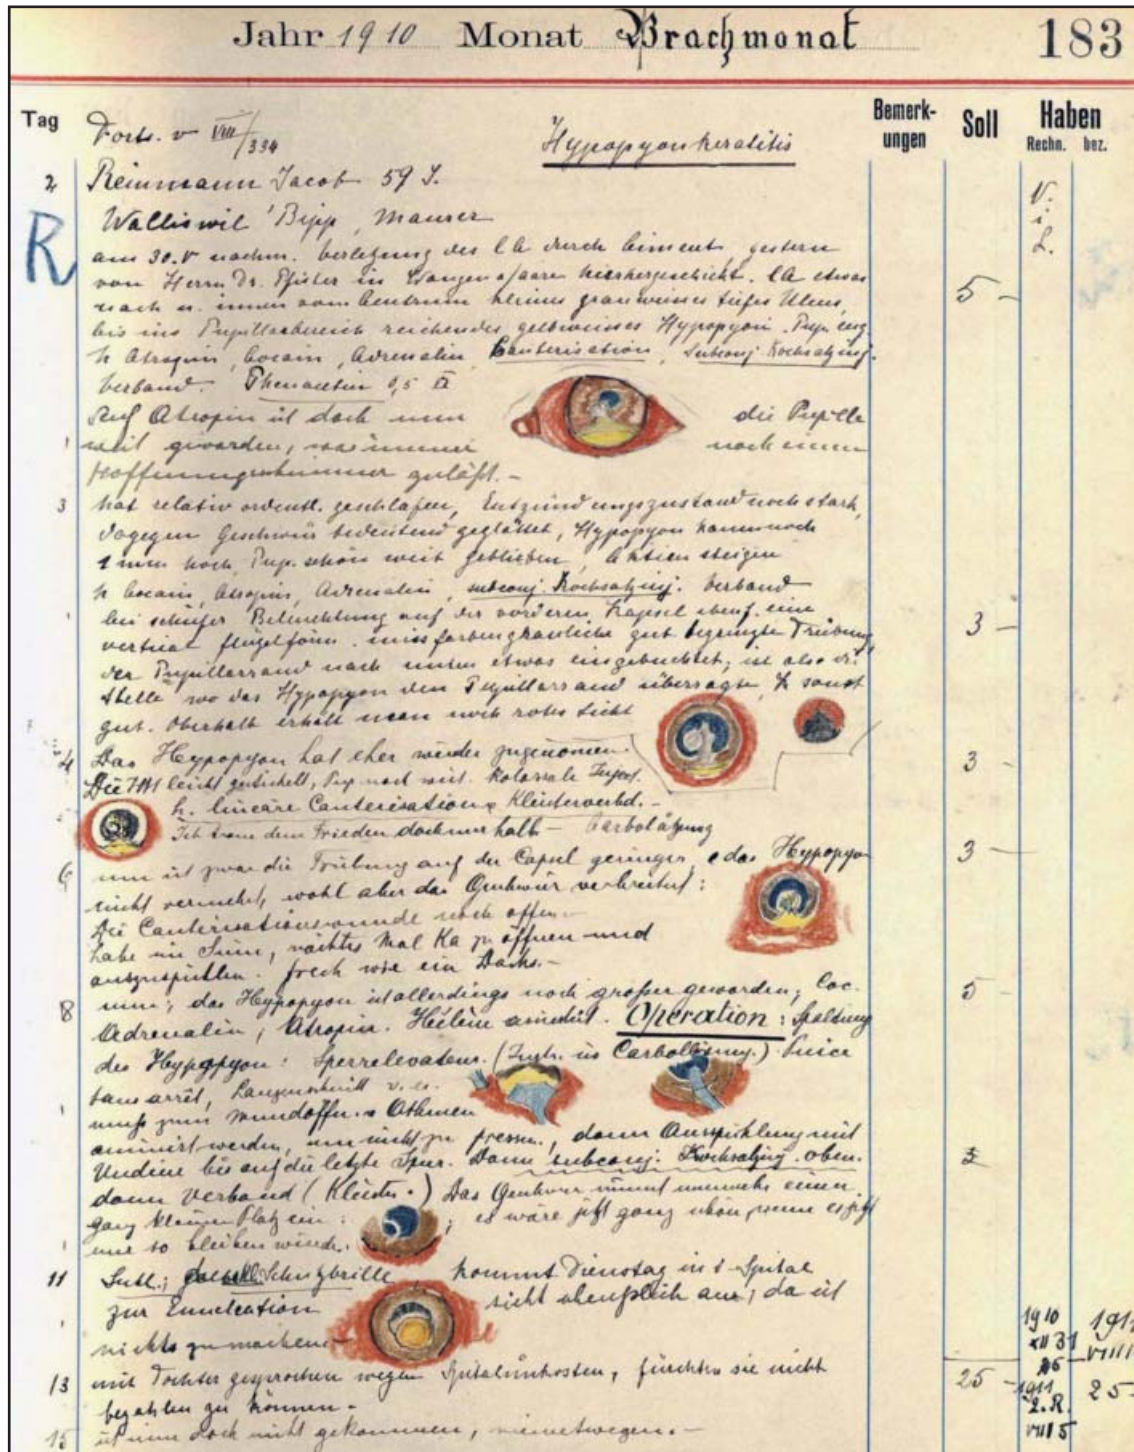 Jahr 1910 Monat Brachmonat 183
Tag Bemerk-ungen Soll Haben
Rechn. bez.
Forts. v VIII/334 Hypopyonkeratitis
2 Reinmann Jacob 59 J. V.
Walliswil Bipp, Maurer i.
R L.
am 30.V nachm. Verletzung des durch Ciment, gestern
von Herrn Dr. Pfister in Wangen a/Aare hierhergeschickt. etwas 5 -
nach u. innen vom Centrum kleines grauweisses tiefes Ulcus,
bis ins Pupillarbereich reichendes gelbweisses Hypopyon. Pup. eng.
h Atropin, Cocain, Adrenalin, Cauterisation, Subconj. Kochsalzinj.
Verband. Phenacetin 0,5
Auf Atropin ist doch nun die Pupille
weit geworden, was immer noch einen
Hoffnungsschimmer zuläßt. -
3 hat relativ ordentl. geschlafen, Entzündungszustand noch stark,
dagegen Geschwür bedeutend geglättet, Hypopyon kaum noch
1 mm hoch, Pup. schön weit geblieben, Aktien steigen
h Cocain, Atropin, Adrenalin, subconj. Kochsalzinj. Verband
bei schiefer Beleuchtung auf der vorderen Kapsel eine 3 -
vertical flügelförm. missfarben grauliche gut begrenzte Trübung
der Pupillarrand nach unten etwas eingebuchtet; ist also die
Stelle wo das Hypopyon den Pupillarrand überragte, sonst
gut. Oberhalb erhält man noch rotes Licht
4 Das Hypopyon hat eher wieder zugenommen. 3 -
Die leicht gestichelt, Pup noch weit. Kolossale Inject.
h. lineäre Cauterisation & Kleisterverbd. -
Ich traue dem Frieden doch nur halb - Carbolätzung
6 nun ist zwar die Trübung auf der Capsel geringer & das Hypopyon 3 -
nicht vermehrt, wohl aber das Geschwür verbreitert:
Die Cauterisationswunde noch offen. -
habe im Sinn, nächstes Mal Ka zu öffnen und
auszuspülen. frech wie ein Dachs. -
8 nun; das Hypopyon ist allerdings noch größer geworden; Coc. 5 -
Adrenalin, Atropin. Operation: Spaltung
des Hypopyon: Sperrelevateur. (Instr. in Carbollösung.)
sans arrêt, Lanzenschnitt v. u.
muß zum Mundöffn. & Athmen
animirt werden, um nicht zu pressen, dann Ausspühlung mit
Undine bis auf die letzte Spur. Dann subconj. Kochsalzinj. oben.
dann Verband (Kleister.) Das Geschwür nimmt nunmehr einen
ganz kleinen Platz ein: ; es wäre jetzt ganz schön, wenn es jetzt
nur so bleiben würde.
11 Schutzbrille, kommt Dienstag ins Spital
zur Enucleation sieht abscheulich aus; da ist
nichts zu machen. -
1910 1911
XII 31 VIII
13 mit Tochter gesprochen wegen Spitalunkosten, fürchten sie nicht 25 - 25 25 -
bezahlen zu können. - 1911
2. R.
15 ist nun doch nicht gekommen, meinetwegen. - VIII 5